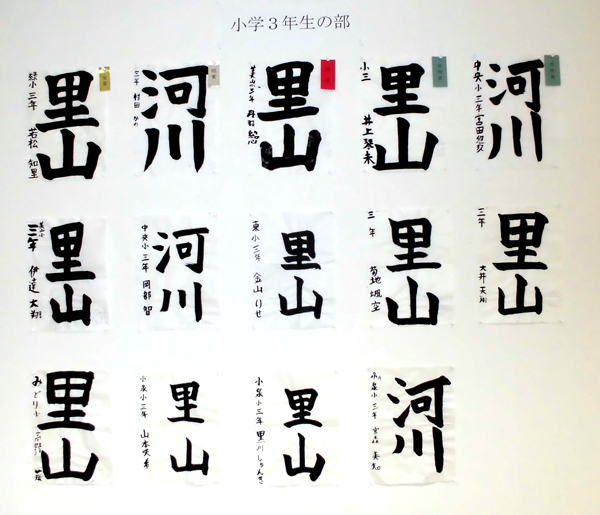 小学３年生の部
里山
緑小三年 若松 知里
河川
三年 村田
里山
里山
小三 井上琴未
河川
中央小三年 宮田
里山
三年 伊達 大翔
河川
中央小三年 岡部 智
里山
東小三年 金山りせ
里山
三年 菊地颯空
里山
三年 大井
里山
みどり小
里山
小泉小三年 山本咲希
里山
小泉小三年 黒川しゅんき
河川
小泉小三年